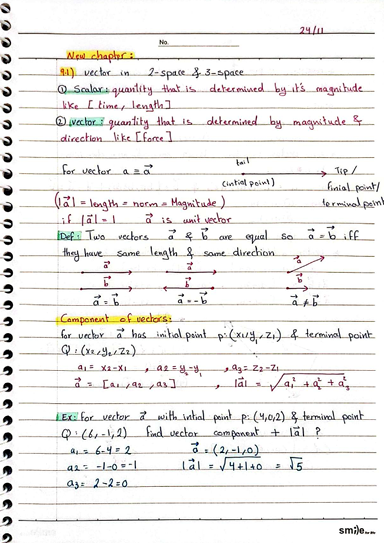 24/11
No.
New chapter:
9.1) vector in 2-space & 3-space
① Scalar: quantity that is determined by it's magnitude
like [time, length]
② vector: quantity that is determined by magnitude &
direction like [force]
for vector a = a⃗
tail
(intial point)
Tip /
finial point/
terminal point
(|a⃗| = length = norm = Magnitude)
if |a⃗| = 1 a⃗ is unit vector
Def: Two vectors a⃗ & b⃗ are equal so a⃗ = b⃗ iff
they have same length & same direction
a⃗ a⃗ a⃗
b⃗ b⃗ b⃗
a⃗ = b⃗ a⃗ = -b⃗ a⃗ ≠ b⃗
Component of vectors:
for vector a⃗ has initial point p: (x1, y1, z1) & terminal point
Q: (x2, y2, z2)
a1 = x2-x1 , a2 = y2-y1 , a3 = z2-z1
a⃗ = [a1, a2, a3] , |a⃗| = √a1² + a2² + a3²
Ex: for vector a⃗ with intial point p: (4,0,2) & terminal point
Q: (6,-1,2) find vector component + |a⃗| ?
a1 = 6-4 = 2 a⃗ = (2,-1,0)
a2 = -1-0 = -1 |a⃗| = √4+1+0 = √5
a3 = 2-2=0
smile